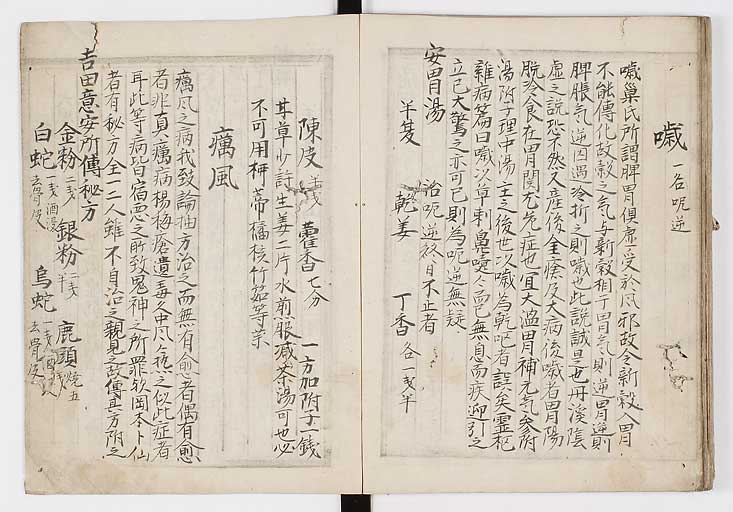 噦 一名呃逆
噦巢氏所謂脾胃俱虚受於風邪故令新穀入胃
不能傳化故穀之气与新穀相干胃气則逆胃逆則
脾脹气逆因遇冷折之則噦也此說誠是也丹溪陰
虚之說恐不然又産後全瘥及大病後噦者胃陽
脱冷食在胃関尤危症也宜大温胃補元气参附
湯附子理中湯主之後世以噦為乾呕者誤矣霊枢
雜病篇曰噦以草刺鼻嚏而已無息而疾迎引之
立已大驚之亦可已則為呃逆無疑
安胃湯 治呃逆終日不止者
半夏 乾姜 丁香各一戋半
陳皮 藿香七分 一方加附子一銭
甘草少許生姜二片水煎服滅茶湯可也必
不可用柿蒂橘核竹茹等菜
癘風
癘风之病我致論抽方治之而無有愈者偶有愈
者非真癘病楊梅瘡遺毒久中风之似此症者
耳此等病皆宿悪之所致鬼神之所罪欤岡本卜仙
者有秘方全一二人雖不自治之親見之故傳其方附之
吉田意安所傳秘方
金粉二戋 銀粉二戋 鹿頭焼五
白蛇一戋酒浸去骨皮 烏蛇一戋酒去骨皮